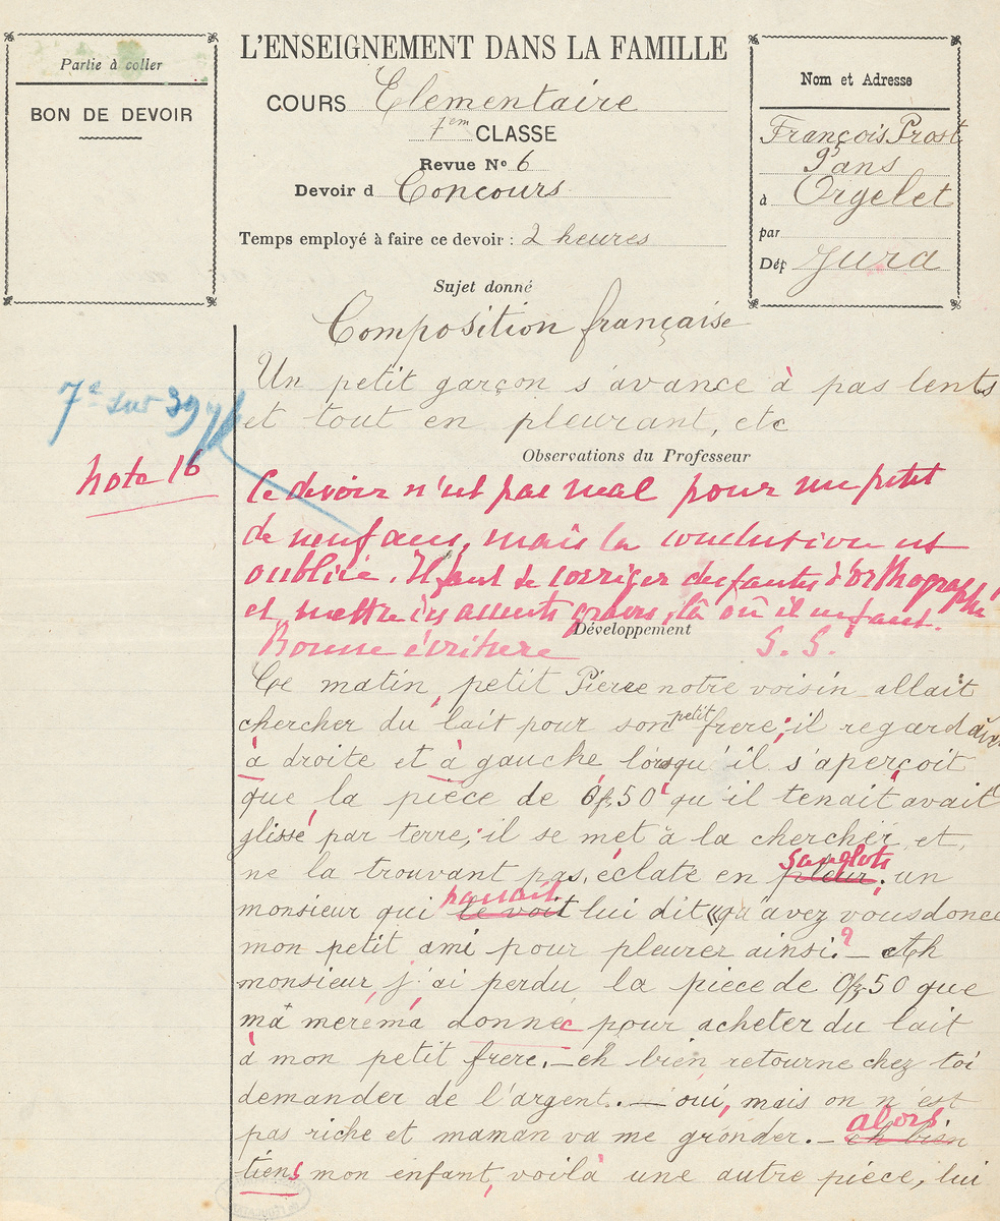 Partie à coller
BON DE DEVOIR
L'ENSEIGNEMENT DANS LA FAMILLE
COURS Elementaire
7em CLASSE
Revue No 6
Devoir d Concours
Temps employé à faire ce devoir : 2 heures
Nom et Adresse
François Prost
9 ans
à Orgelet
par
Dép Jura
Sujet donné
Composition française
Un petit garçon s'avance à pas lents
et tout en pleurant, etc
7e sur 39
note 16
Observations du Professeur
Ce devoir n'est pas mal pour un petit
de neuf ans, mais la conclusion est
oubliée. Il faut te corriger des fautes d'orthographe
et mettre les accents graves, là où il en faut.
Bonne écriture S. S.
Développement
Ce matin, petit Pierre notre voisin allait
chercher du lait pour son petit frere; il regardait
à droite et à gauche lorsqu'il s'aperçoit
que la pièce de 0f,50 qu'il tenait avait
glissé par terre; il se met à la chercher et,
ne la trouvant pas, éclate en pleur sanglots; un
monsieur qui le voit passait lui dit «qu'avez vous donc
mon petit ami pour pleurer ainsi? — Ah
monsieur j'ai perdu la piece de 0f,50 que
ma mère m'a donnée pour acheter du lait
à mon petit frere. — eh bien retourne chez toi
demander de l'argent. — oui, mais on n'est
pas riche et maman va me gronder. — eh bien alors
tiens mon enfant, voilà une autre pièce, lui